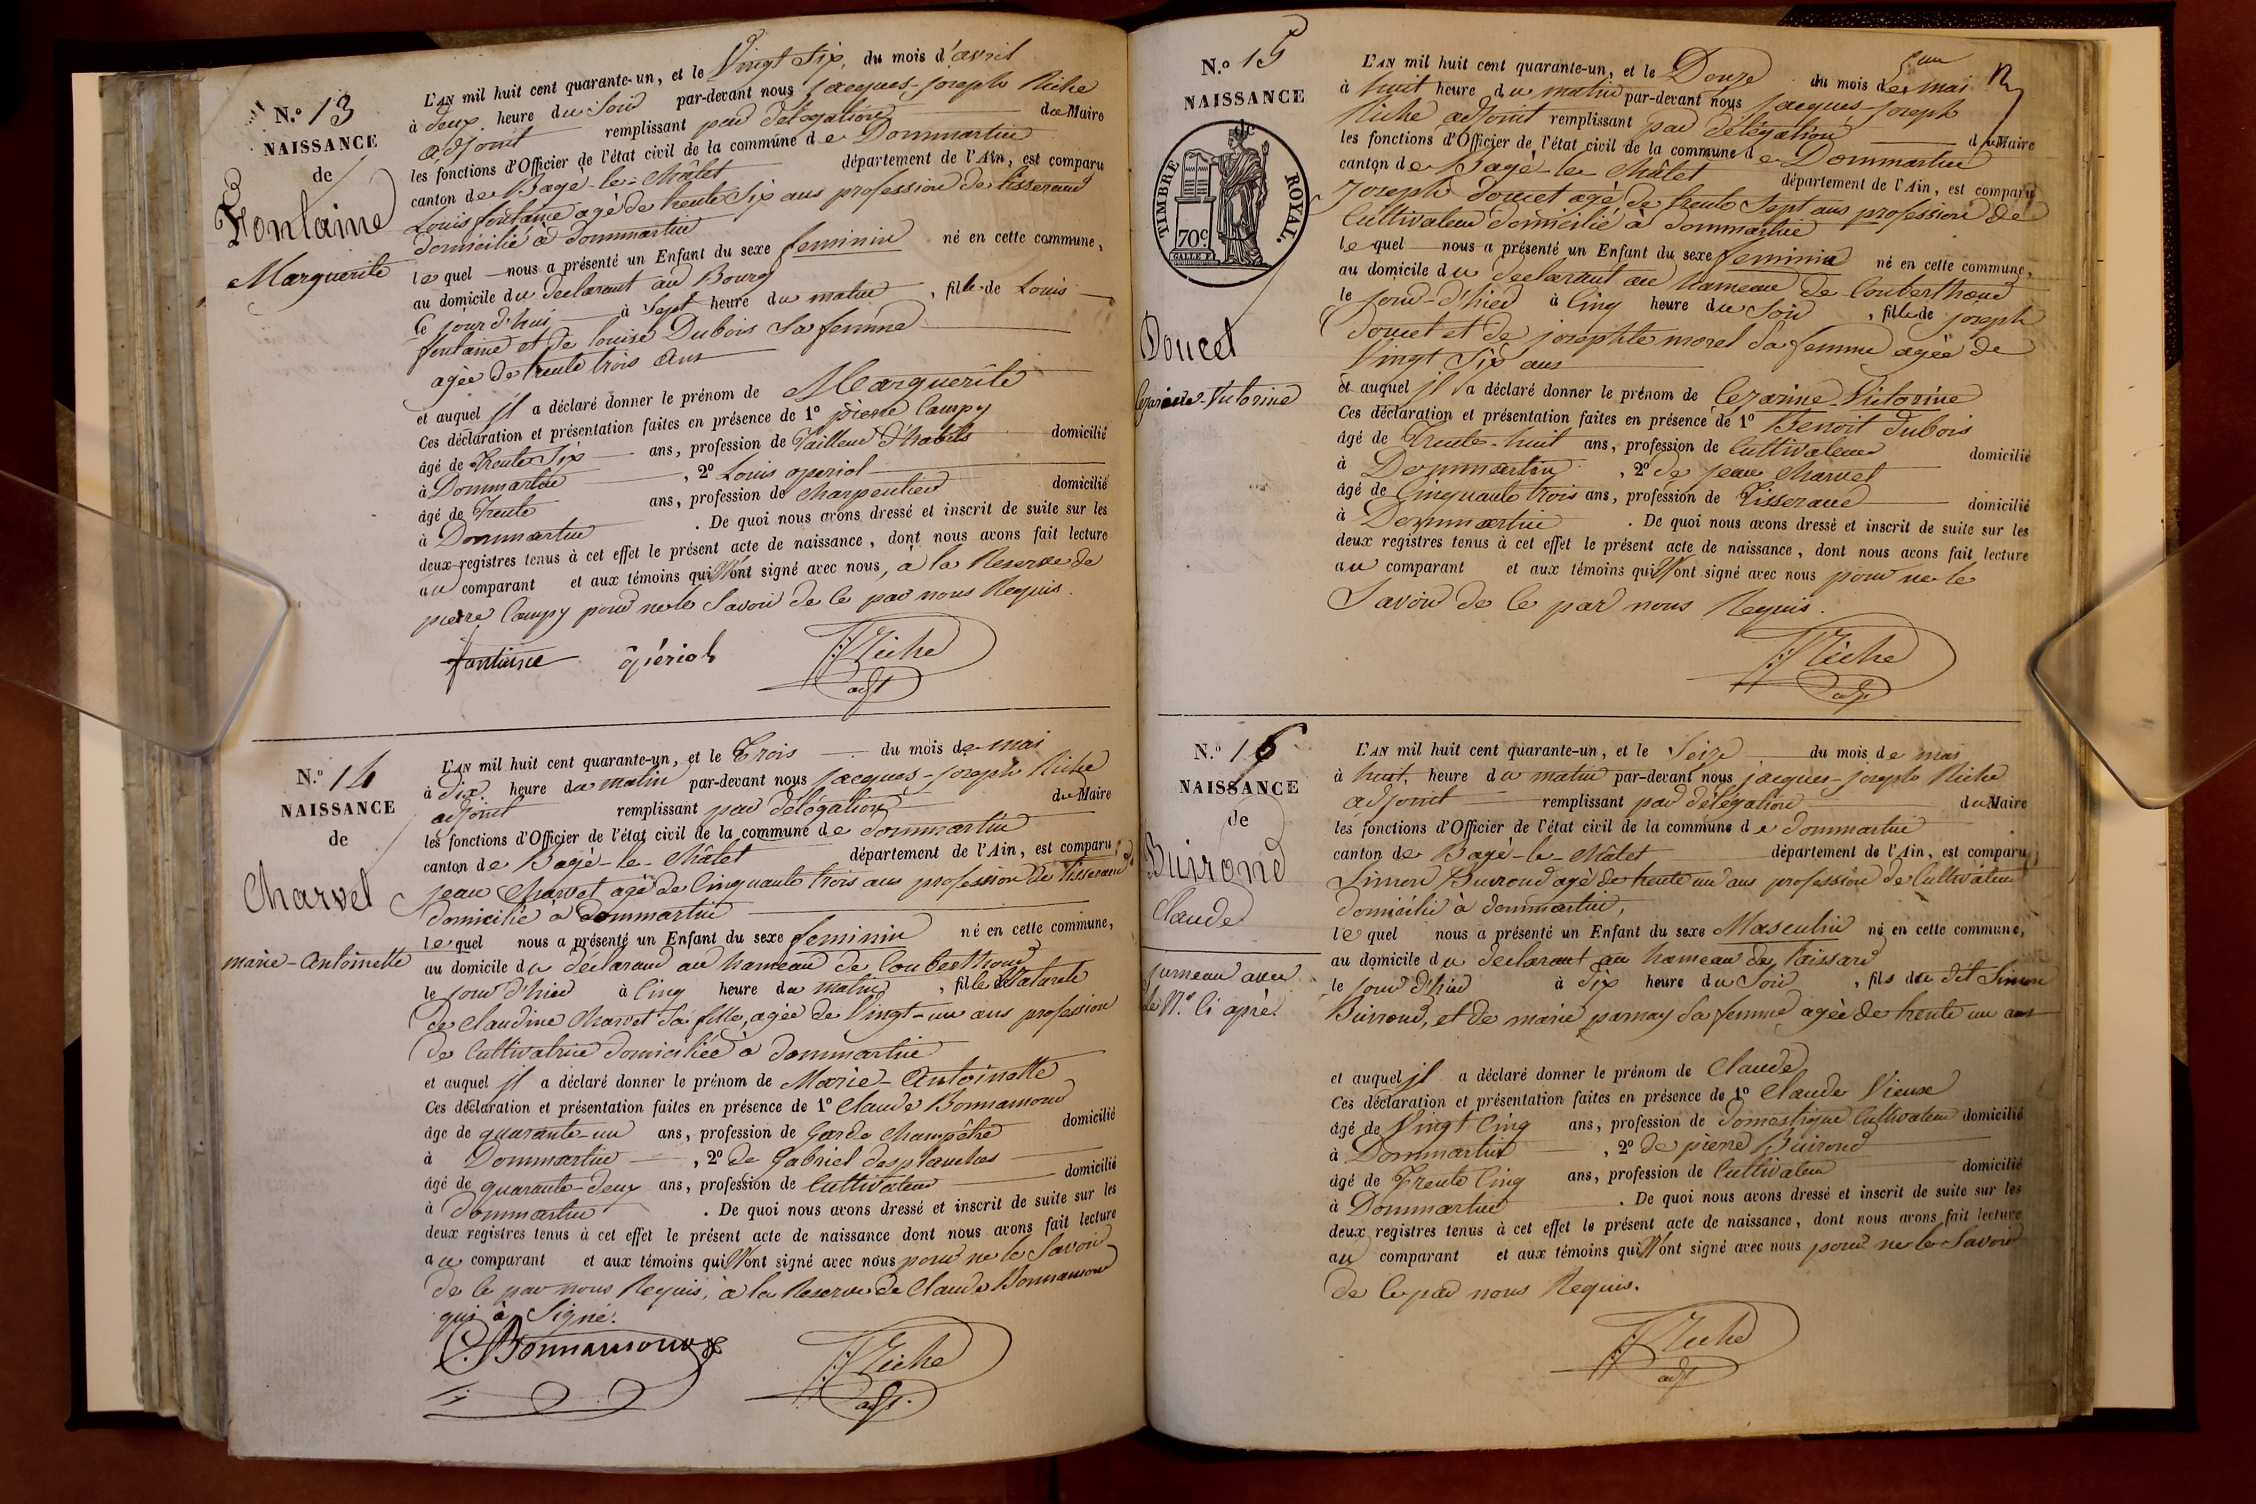 N.º 13
NAISSANCE
de
Fontaine
Marguerite
L'AN mil huit cent quarante-un, et le Vingt Six, du mois d'avril
à deux heure du Soir par-devant nous jacques-joseph Riche
adjoint remplissant par délégation du Maire
les fonctions d'Officier de l'état civil de la commune de Dommartin
canton de Bagé-le-Châtel département de l'Ain, est comparu
Louis fontaine agé de trente Six ans profession de tisserand
domicilié à dommartin
lequel nous a présenté un Enfant du sexe feminin né en cette commune,
au domicile du declarant au Bourg
Ce jourd'hui à Sept heure du matin, fille de Louis
fontaine et de louise Dubois Sa femme
agée de trente trois ans
et auquel il a déclaré donner le prénom de Marguerite
Ces déclaration et présentation faites en présence de 1º pierre Campy
âgé de Trente Six ans, profession de Tailleur d'habits domicilié
à Dommartin, 2º Louis operiol
âgé de Trente ans, profession de charpentier domicilié
à Dommartin. De quoi nous avons dressé et inscrit de suite sur les
deux registres tenus à cet effet le présent acte de naissance, dont nous avons fait lecture
au comparant et aux témoins qui ont signé avec nous, à la Reserve de
pierre Campy pour ne le Savoir de ce par nous Requis.
fontaine opériol JJRiche
adjt
N.º 14
NAISSANCE
de
Charvet
marie-Antoinette
L'AN mil huit cent quarante-un, et le Trois du mois de mai
à dix heure du matin par-devant nous jacques-joseph Riche
adjoint remplissant par délégation du Maire
les fonctions d'Officier de l'état civil de la commune de dommartin
canton de Bagé-le-Châtel département de l'Ain, est comparu
jean Charvet agé de Cinquante trois ans profession de Tisserand
domicilié a dommartin
lequel nous a présenté un Enfant du sexe feminin né en cette commune,
au domicile du déclarand au hameau de Couberthoud
le jour d'hier à Cinq heure du matin, fille Naturele
de Claudine Charvet Sa fille, agée de Vingt-un ans profession
de Cultivatrice domiciliée à dommartin
et auquel il a déclaré donner le prénom de Marie-Antoinette
Ces déclaration et présentation faites en présence de 1º Claude Bonnamour
âge de quarante-un ans, profession de Garde Champêtre domicilié
à Dommartin, 2º de Gabriel desplanches
âgé de quarante-deux ans, profession de Cultivateur domicilié
à dommartin. De quoi nous avons dressé et inscrit de suite sur les
deux registres tenus à cet effet le présent acte de naissance dont nous avons fait lecture
au comparant et aux témoins qui n'ont signé avec nous pour ne le Savoir
de ce par nous Requis, à la Reserve de Claude Bonnamour
qui à Signé.
C. Bonnamour JJRiche
adjt.
N.º 15
NAISSANCE
de
TIMBRE ROYAL.
70c
Doucet
Cezarine-Victorine
L'AN mil huit cent quarante-un, et le Douze du mois de mai
à huit heure du matin par-devant nous jacques-joseph
Riche adjoint remplissant par délégation du Maire
les fonctions d'Officier de l'état civil de la commune de Dommartin
canton de Bagé-le-Châtel département de l'Ain, est comparu
Joseph doucet agé de trente Sept ans profession de
Cultivateur domicilié à dommartin
lequel nous a présenté un Enfant du sexe feminin né en cette commune,
au domicile du declarant au hameau de Couberthoud
le jour-d'hier à Cinq heure du Soir, fille de joseph
doucet et de joséphte morel Sa femme agée de
Vingt Six ans
et auquel il a déclaré donner le prénom de Cezarine Victorine
Ces déclaration et présentation faites en présence de 1º Benoit Dubois
âgé de Trente-huit ans, profession de Cultivateur domicilié
à Dommartin, 2º de jean Charvet
âgé de Cinquante trois ans, profession de Tisserand domicilié
à Dommartin. De quoi nous avons dressé et inscrit de suite sur les
deux registres tenus à cet effet le présent acte de naissance, dont nous avons fait lecture
au comparant et aux témoins qui n'ont signé avec nous pour ne le
Savoir de ce par nous Requis.
JJRiche
adjt
N.º 16
NAISSANCE
de
Buiroud
Claude
jumeau avec
le N.º Ci après
L'AN mil huit cent quarante-un, et le Seize du mois de mai
à huit heure du matin par-devant nous jacques-joseph Riche
adjoint remplissant par délégation du Maire
les fonctions d'Officier de l'état civil de la commune de dommartin
canton de Bagé-le-Châtel département de l'Ain, est comparu
Simon Buiroud agé de trente un ans profession de Cultivateur
domicilié à dommartin,
lequel nous a présenté un Enfant du sexe Masculin né en cette commune,
au domicile du declarant au hameau de taissard
le jour d'hier à dix heure du Soir, fils du dit Simon
Buiroud, et de marie parnay Sa femme agée de trente un ans
et auquel il a déclaré donner le prénom de Claude
Ces déclaration et présentation faites en présence de 1º Claude Vieux
âgé de Vingt Cinq ans, profession de domestique Cultivateur domicilié
à Dommartin, 2º de pierre Buiroud
âgé de Trente Cinq ans, profession de Cultivateur domicilié
à Dommartin. De quoi nous avons dressé et inscrit de suite sur les
deux registres tenus à cet effet le présent acte de naissance, dont nous avons fait lecture
au comparant et aux témoins qui n'ont signé avec nous pour ne le Savoir
de ce par nous Requis.
JJRiche
adjt